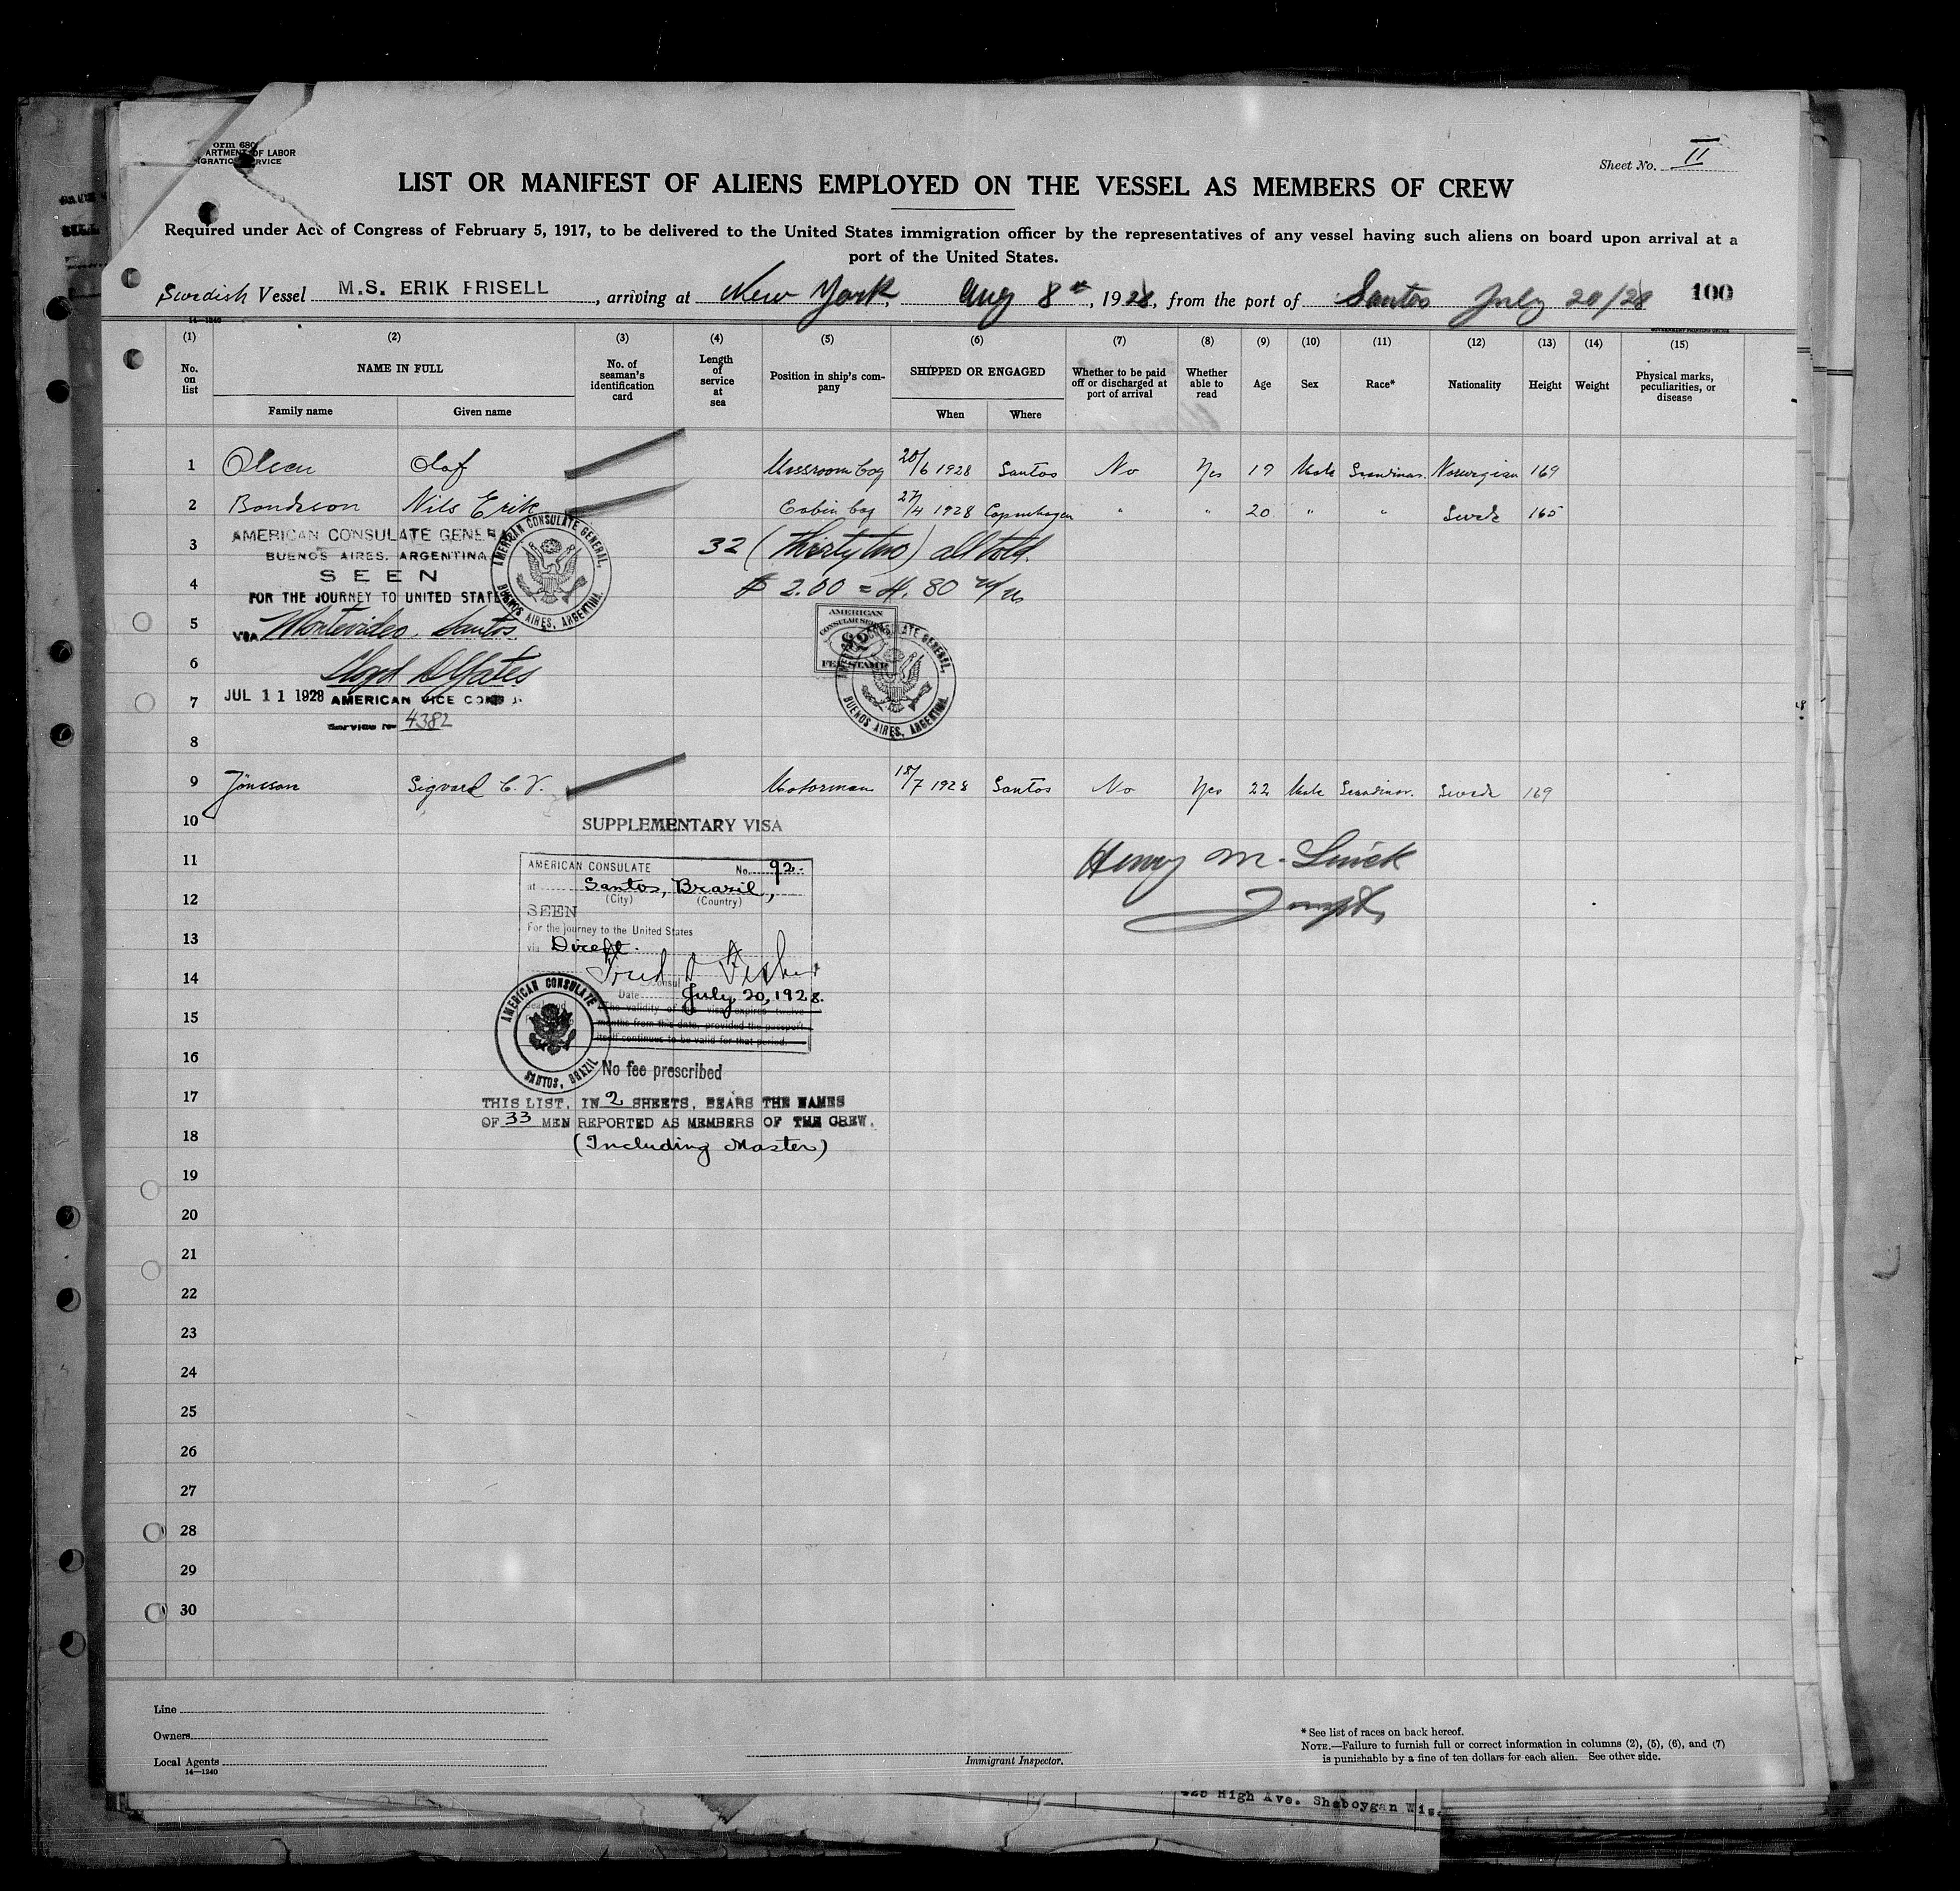 orm 680
ARTMENT OF LABOR
IGRATION SERVICE
Sheet No. II
LIST OR MANIFEST OF ALIENS EMPLOYED ON THE VESSEL AS MEMBERS OF CREW
Required under Act of Congress of February 5, 1917, to be delivered to the United States immigration officer by the representatives of any vessel having such aliens on board upon arrival at a
port of the United States.
Swedish Vessel M.S. ERIK FRISELL, arriving at New York, Aug 8th, 1928, from the port of Santos July 20/28 100
14—1240
(1) (2) (3) (4) (5) (6) (7) (8) (9) (10) (11) (12) (13) (14) (15)
No. on list NAME IN FULL No. of seaman's identification card Length of service at sea Position in ship's company SHIPPED OR ENGAGED Whether to be paid off or discharged at port of arrival Whether able to read Age Sex Race* Nationality Height Weight Physical marks, peculiarities, or disease
Family name Given name When Where
1 Olsen Olaf Messroom boy 20/6 1928 Santos No Yes 19 Male Scandinav. Norwegian 169
2 Bondeson Nils Erik Cabin boy 27/4 1928 Copenhagen " " 20 " " Swede 165
AMERICAN CONSULATE GENERA
BUENOS AIRES, ARGENTINA
SEEN
FOR THE JOURNEY TO UNITED STATE
VIA Montevideo, Santos.
AMERICAN CONSULATE GENERAL, BUENOS AIRES, ARGENTINA.
3 32 (thirtytwo) all told.
4 $ 2.00 = 4.80
5
AMERICAN
CONSULAR SERVICE
$2
FEE STAMP
AMERICAN CONSULATE GENERAL, BUENOS AIRES, ARGENTINA.
6
7 JUL 11 1928 AMERICAN VICE CONSUL
Service No 4382
8
9 Jönsson Sigvard C. V. Motorman 18/7 1928 Santos No Yes 22 Male Scandinav. Swede 169
10 SUPPLEMENTARY VISA
11 AMERICAN CONSULATE No. 92.
at Santos, Brazil,
(City) (Country)
12 SEEN
For the journey to the United States
13 via Direct.
14 Consul
Date July 20, 1928.
15 The validity of visa expires twelve
months from this date, provided the passport
itself continues to be valid for that period.
AMERICAN CONSULATE SANTOS, BRAZIL
Henry M.
16 No fee prescribed
17 THIS LIST, IN 2 SHEETS, BEARS THE NAMES
OF 33 MEN REPORTED AS MEMBERS OF THE CREW.
18 (Including Master)
19
20
21
22
23
24
25
26
27
28
29
30
Line
Owners
Local Agents
14—1240
Immigrant Inspector.
* See list of races on back hereof.
NOTE.—Failure to furnish full or correct information in columns (2), (5), (6), and (7)
is punishable by a fine of ten dollars for each alien. See other side.
High Ave. Sheboygan Wis.